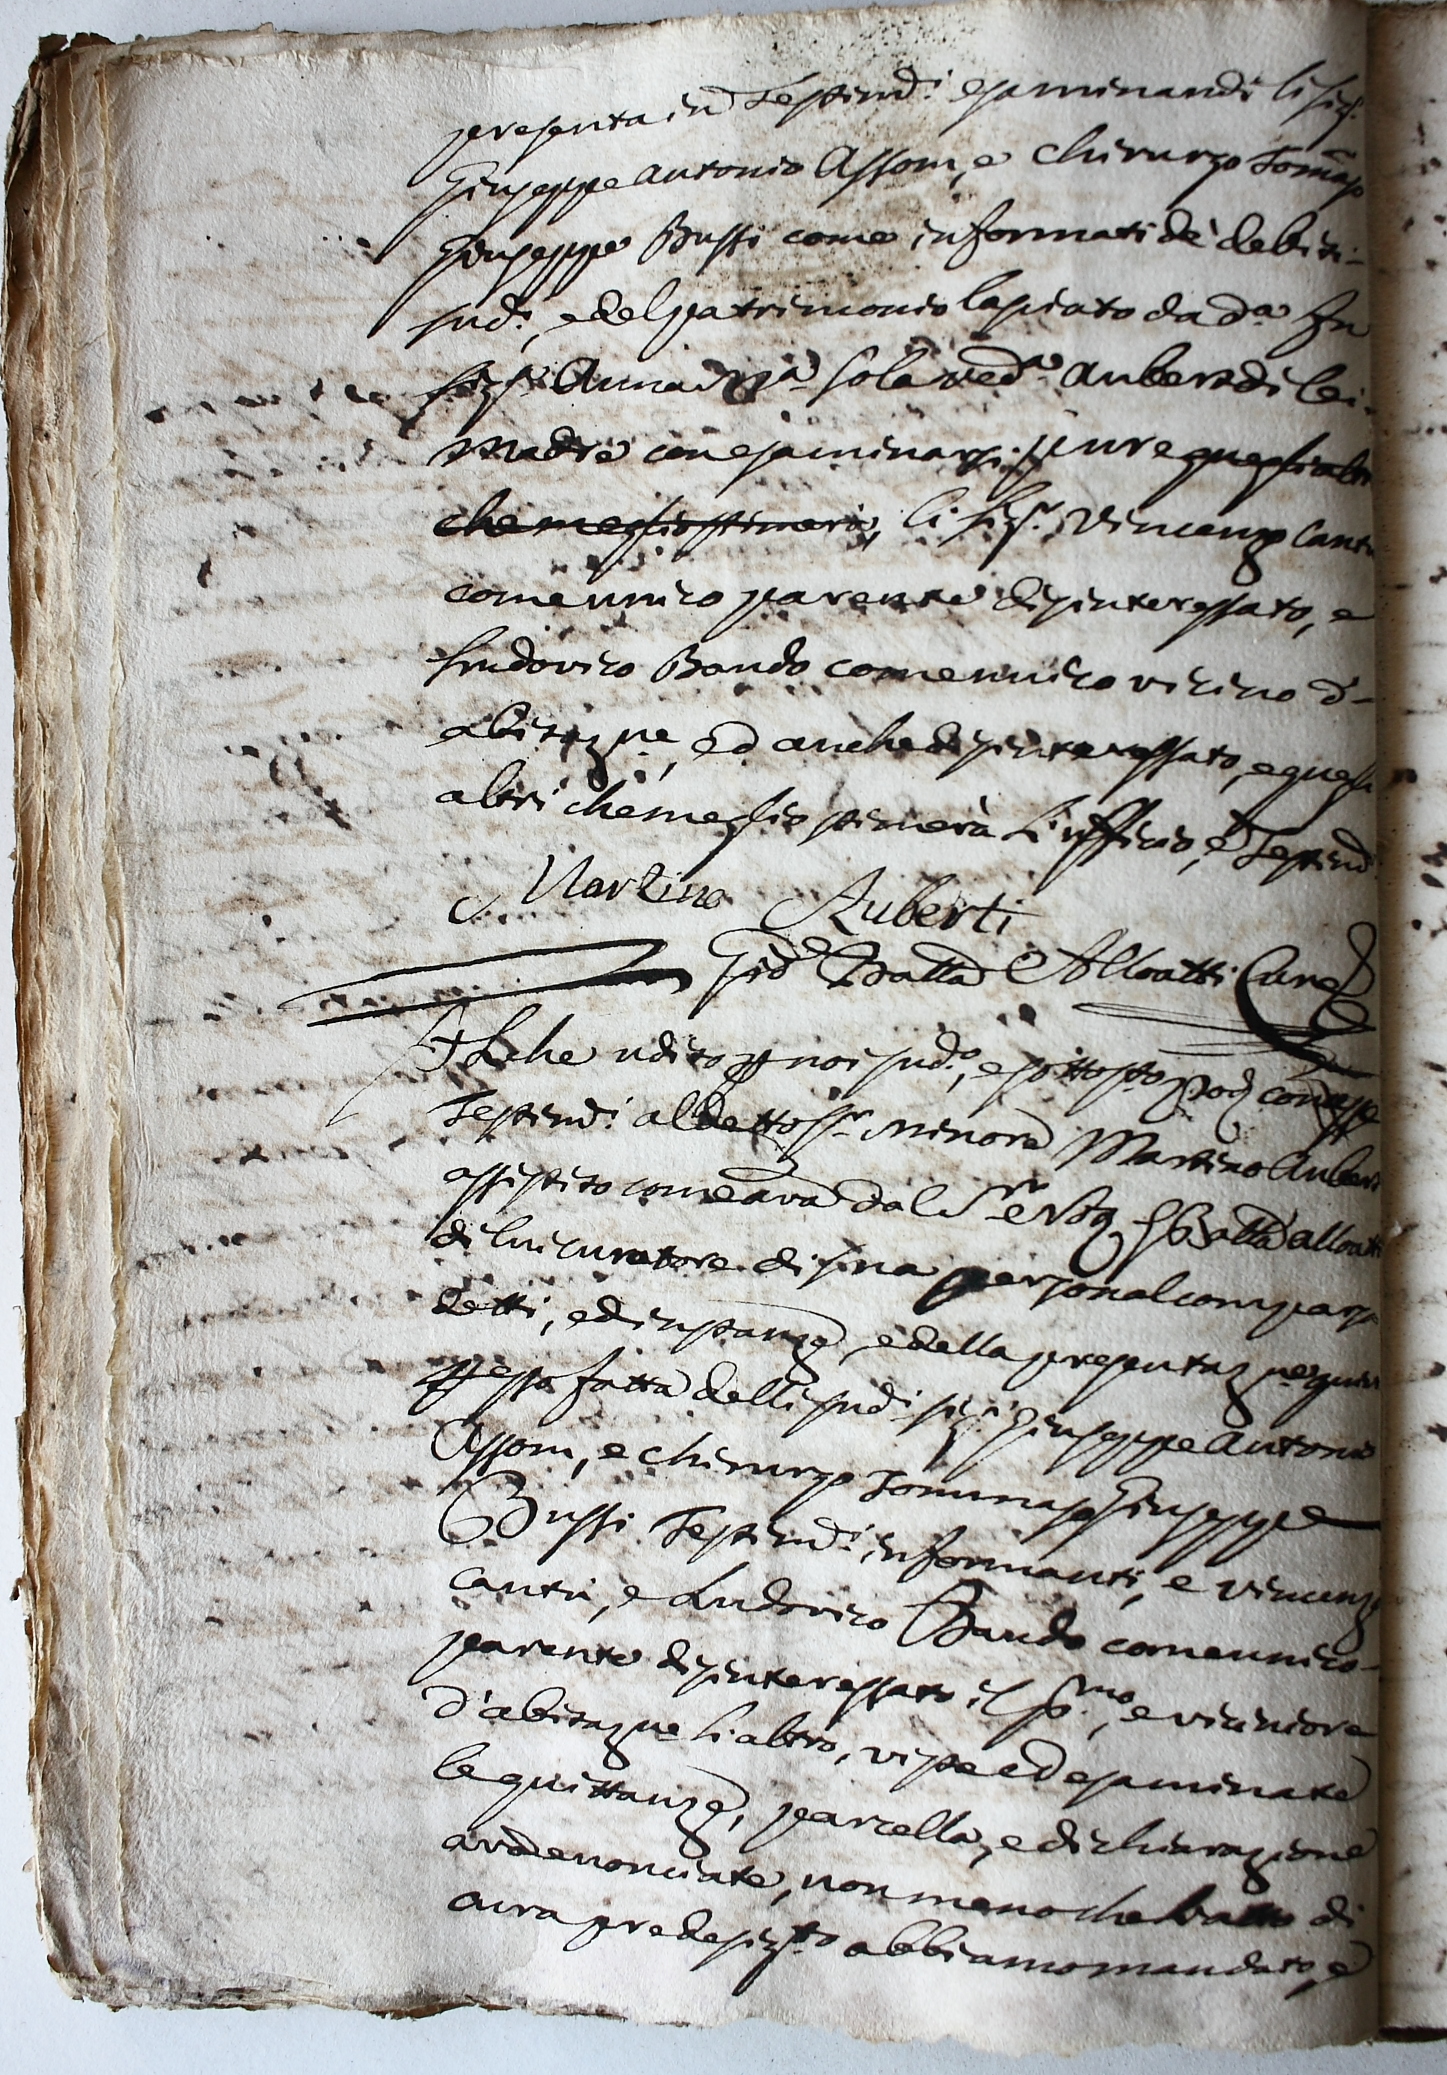 presenta in Testim.di esaminandi li sig.ri
Giuseppe Antonio Assom, e Chirurgo Tomaso
Giuseppe Bussi come informati de' debiti
sud.i, e del patrimonio lasciato da d.a fu
Sig.ra Anna M.a Sola ved.a Auberti di lei
Madre con esaminarsi pure quegli altri
che meglio stimerà, li Sig.ri Vincenzo Cantù
come unico parente disinteressato, e
Ludovico Bando come unico vicino d'
abitaz.ne, ed anche disinteressato, e quegli
altri che meglio stimerà L'ufficio, e Testim.di
Martino Auberti
Gio Batta Alloatti Cure
Il che udito p noi sud.o, e sottost.o
Testim.di al detto S.r minore Martino Auberti
assistito come avā dal S.r Nog G Batta Alloatti
di lui curatore di sua personal compars.
detti, ed instanze, e della presentaz.ne quivi
p esso fatta delli sud.i sig.ri Giuseppe Antonio
Assom, e Chirurgo Tommaso Giuseppe
Bussi Testim.di informanti, e Vincenzo
Cantù, e Ludovico Bando come unico
parente disinteressato il p.mo, e viciniore
d'abitaz.ne L'altro, viste ed esaminate
le quittanze, parcella, e dichiarazione
avā denonciate, non meno che l'atto di
cura predesig.to abbiamo mandato, e